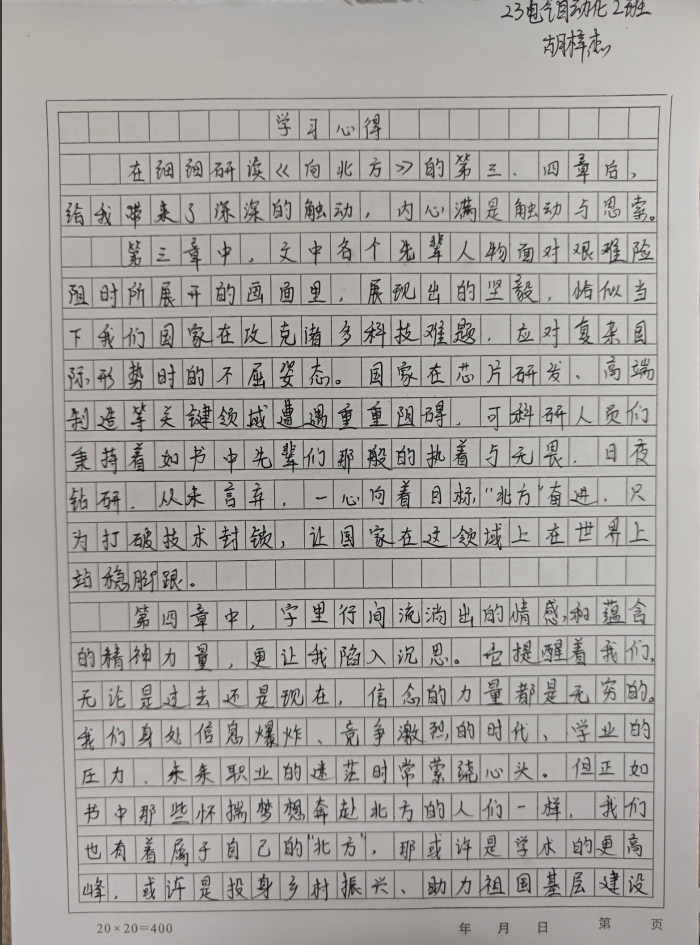 23电气自动化2班
胡梓杰
学习心得
在细细研读《向北方》的第三、四章后，
给我带来了深深的触动，内心满是触动与思索。
第三章中，文中各个先辈人物面对艰难险
阻时所展开的画面里，展现出的坚毅，恰似当
下我们国家在攻克诸多科技难题，应对复杂国
际形势时的不屈姿态。国家在芯片研发、高端
制造等关键领域遭遇重重阻碍，可科研人员们
秉持着如书中先辈们那般的执着与无畏，日夜
钻研，从未言弃，一心向着目标，"北方"奋进，只
为打破技术封锁，让国家在这领域上在世界上
站稳脚跟。
第四章中，字里行间流淌出的情感，和蕴含
的精神力量，更让我陷入沉思。它提醒着我们，
无论是过去还是现在，信念的力量都是无穷的。
我们身处信息爆炸、竞争激烈的时代、学业的
压力、未来职业的迷茫时常萦绕心头。但正如
书中那些怀揣梦想奔赴北方的人们一样，我们
也有着属于自己的"北方"，那或许是学术的更高
峰，或许是投身乡村振兴、助力祖国基层建设
20×20=400 年 月 日 第 页